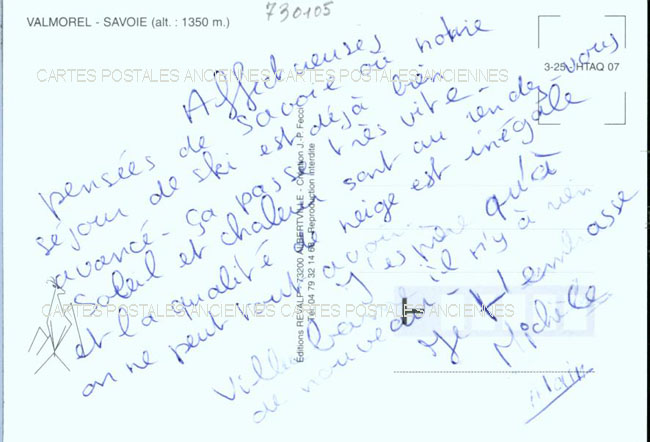 730105
VALMOREL - SAVOIE (alt. : 1350 m.)
3-25 HTAQ 07
CARTES POSTALES ANCIENNES CARTES POSTALES ANCIENNES
Affectueuses
pensées de Savoie où notre
séjour de ski est déjà bien
avancé - Ça passe très vite -
Soleil et chaleur sont au rendez-vous
et la qualité de neige est inégale
on ne peut tout avoir -
J'espère qu'à
il n'y a rien
de nouveau -
Je t'embrasse
Michèle
Editions REVALP - 73200 ALBERTVILLE - Création J.-P. Fecci
Tél. 04 79 32 14 Reproduction interdite
CARTES POSTALES ANCIENNES CARTES POSTALES ANCIENNES